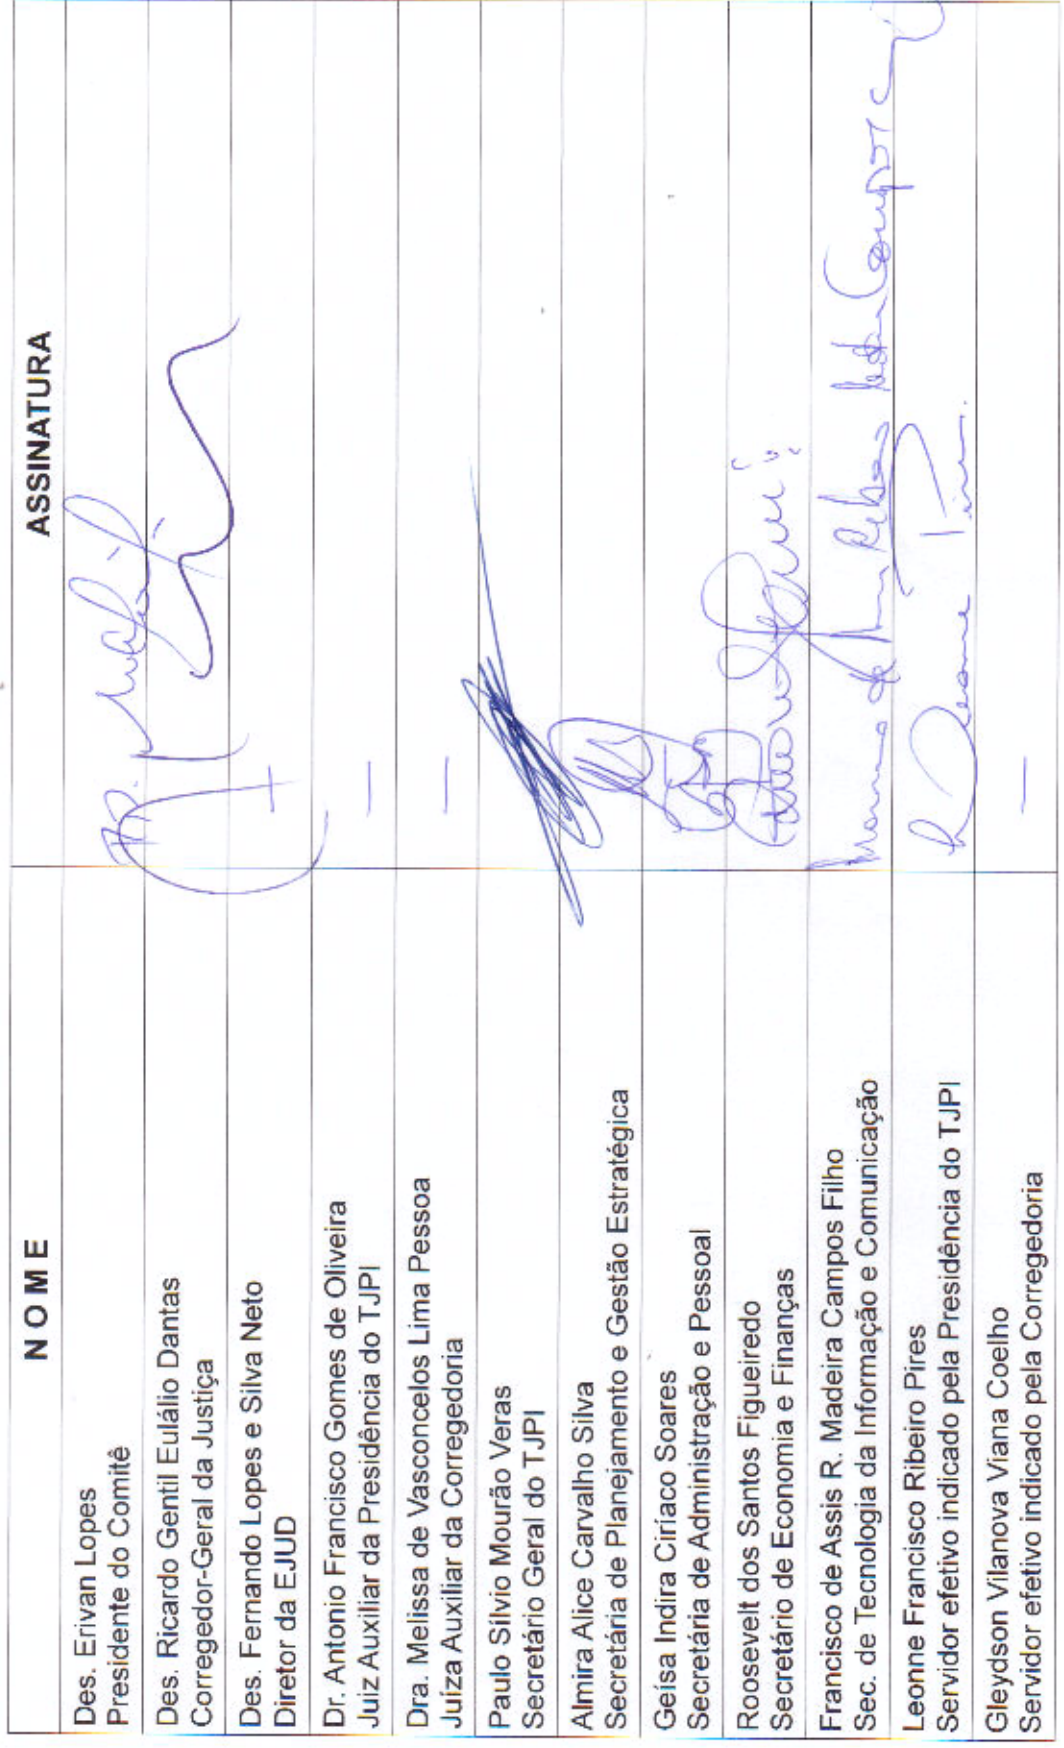 NOME ASSINATURA
Des. Erivan Lopes
Presidente do Comitê
Des. Ricardo Gentil Eulálio Dantas
Corregedor-Geral da Justiça
Des. Fernando Lopes e Silva Neto
Diretor da EJUD
Dr. Antonio Francisco Gomes de Oliveira
Juiz Auxiliar da Presidência do TJPI
Dra. Melissa de Vasconcelos Lima Pessoa
Juíza Auxiliar da Corregedoria
Paulo Sílvio Mourão Veras
Secretário Geral do TJPI
Almira Alice Carvalho Silva
Secretária de Planejamento e Gestão Estratégica
Geísa Indira Ciríaco Soares
Secretária de Administração e Pessoal
Roosevelt dos Santos Figueiredo
Secretário de Economia e Finanças
Francisco de Assis R. Madeira Campos Filho
Sec. de Tecnologia da Informação e Comunicação
Leonne Francisco Ribeiro Pires
Servidor efetivo indicado pela Presidência do TJPI
Gleydson Vilanova Viana Coelho
Servidor efetivo indicado pela Corregedoria